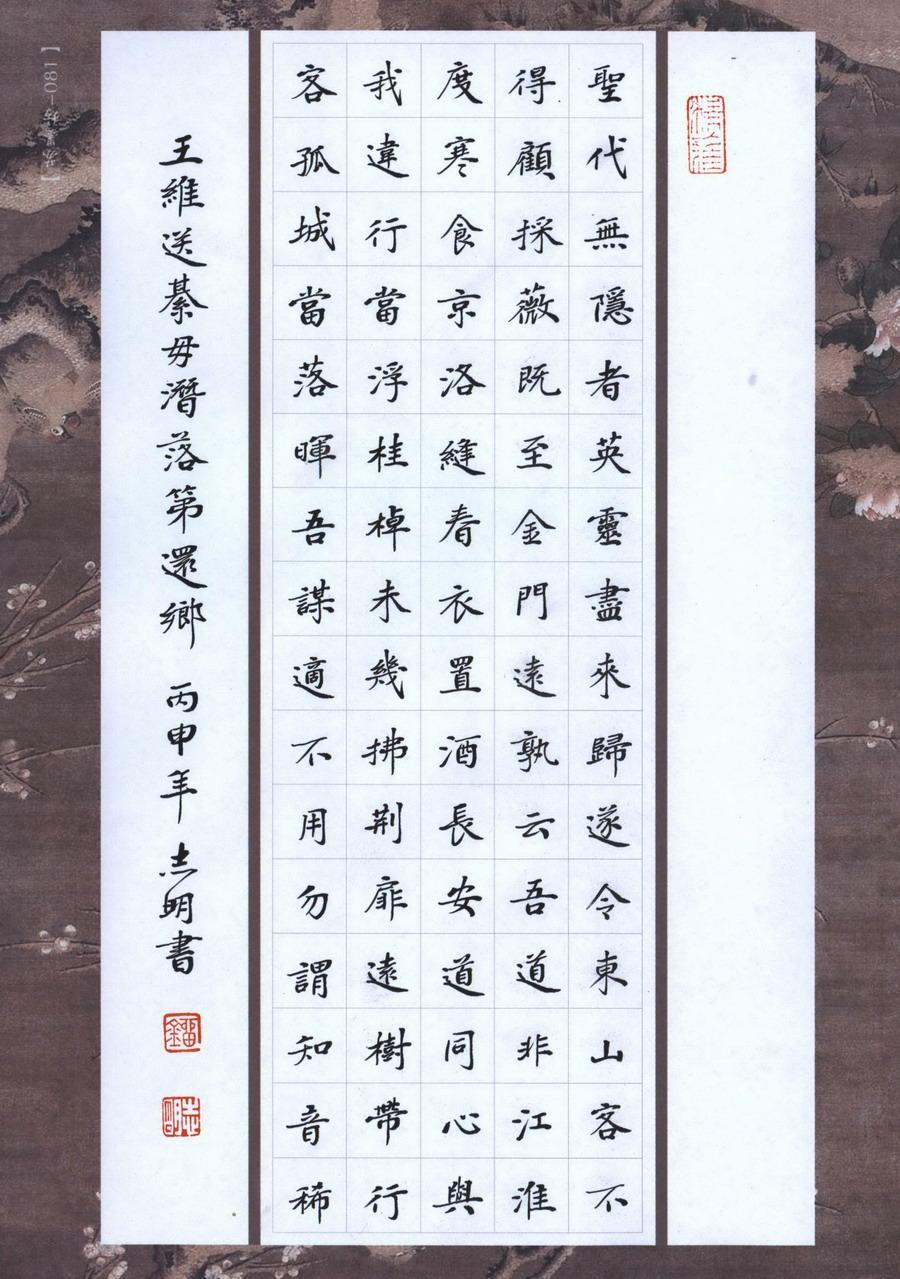 聖代無隱者英靈盡來歸遂令東山客不
得顧採薇既至金門遠孰云吾道非江淮
度寒食京洛縫春衣置酒長安道同心與
我違行當浮桂棹未幾拂荆扉遠樹帶行
客孤城當落暉吾謀適不用勿謂知音稀
王維送綦毋潛落第還鄉 丙申年 志明書
志明
-081】